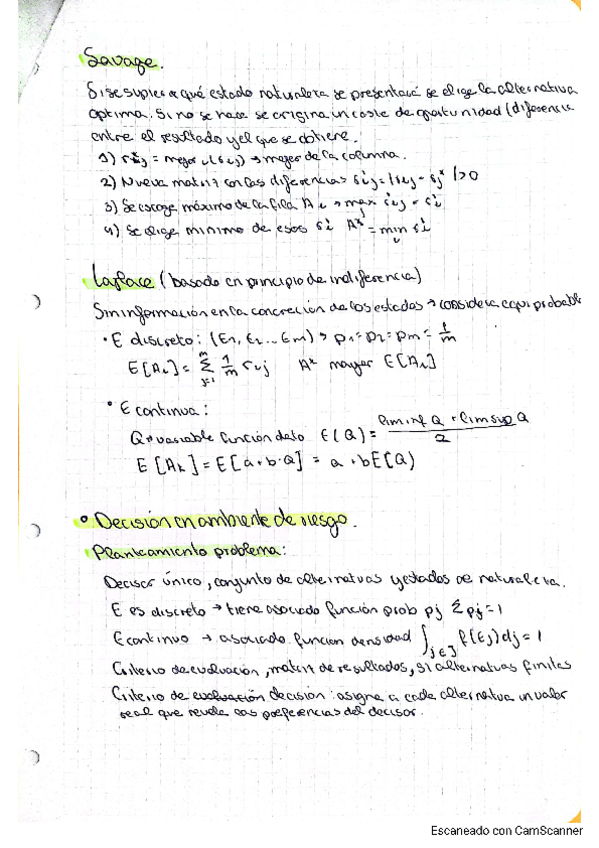 Savage.
Si se supiera qué estado naturaleza se presentará se elige la alternativa
optima. Si no se hace se origina un coste de oportunidad (diferencia
entre el resultado y el que se obtiene.
1) r*j = mejor (rij) → mejor de la columna.
2) Nueva matriz con las diferencias sij = |rij - rj*| >0
3) Se escoge máximo de la fila Ai → max sij = si
4) Se elige minimo de esos si A* = min si
Laplace (basado en principio de indiferencia)
Sin información en la concreción de los estados → considera equiprobable
• E discreto: (E1, E2 ... Em) → p1 = p2 = pm = 1/m
E[Ai] = Σ j=1 m 1/m rij A* mayor E[Ai]
• E continua:
Q → variable función dato E(Q) = lim inf Q + lim sup Q / 2
E[Ak] = E[a+b·Q] = a + bE(Q)
• Decisión en ambiente de riesgo.
Planteamiento problema:
Decisor único, conjunto de alternativas y estados de naturaleza.
E es discreto → tiene asociado función prob pj Σpj = 1
E continuo → asociado funcion densidad ∫j∈J f(Ej)dj = 1
Criterio de evaluación, matriz de resultados, si alternativas finitas
Criterio de evaluación decisión: asigna a cada alternativa un valor
real que revela las preferencias del decisor.
Escaneado con CamScanner